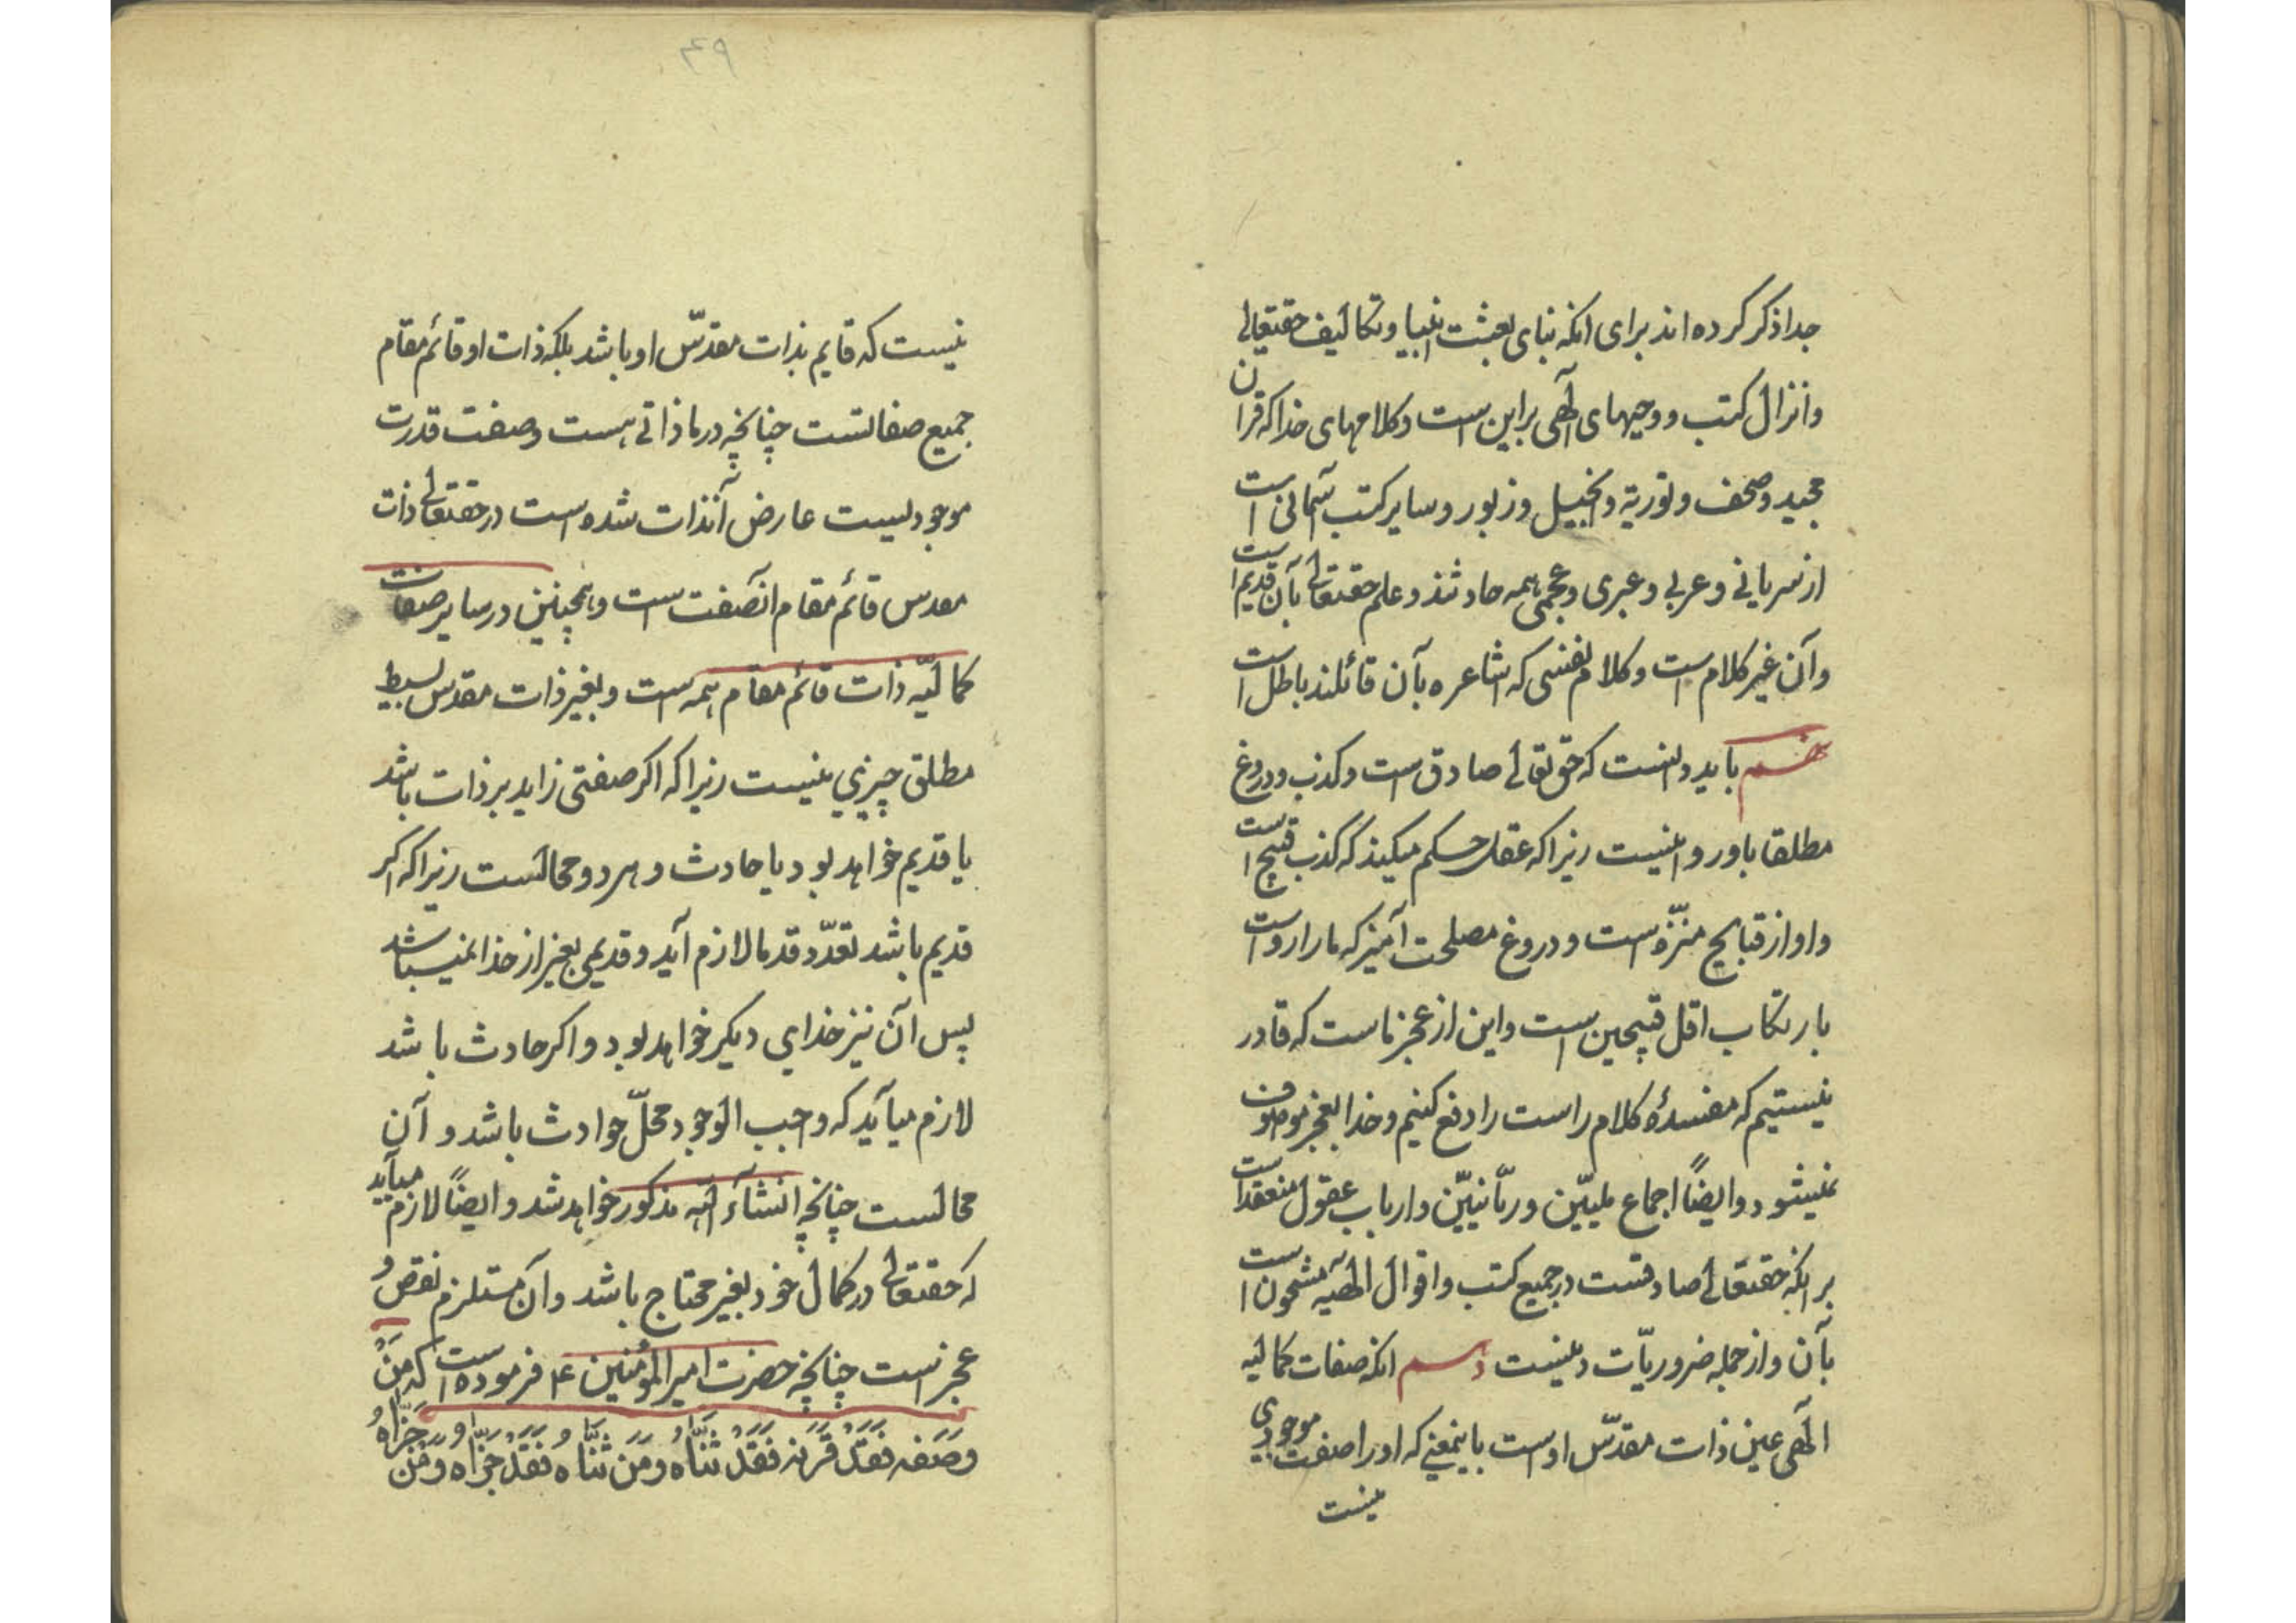 جدا ذکر کرده اند برای انکه بنای بعثت انبیا و تکالیف حقتعالی
و انزال کتب و وحیهای الٓهی بر این است و کلامهای خدا که قران
مجید و صحف و توریة و انجیل و زبور و سایر کتب آسمانی است
از سریانی و عربی و عبری و عجمی همه حادثند و علم حقتعالی بآن قدیم است
و آن غیر کلام است و کلام نفسی که اشاعره بآن قائلند باطل است
باید دانست که حق تعالی صادق است و کذب و دروغ
مطلقا باو روا نیست زیرا که عقل حکم میکند که کذب قبیح است
و او از قبایح منزّه است و دروغ مصلحت آمیز که ما را روا است
بارتکاب اقل قبیحین است و این از عجز ماست که قادر
نیستیم که مفسدهٔ کلام راست را دفع کنیم و خدا بعجز موصوف
نمیشود و ایضاً اجماع ملیّین و ربّانیّین و ارباب عقول منعقد است
بر انکه حقتعالی صادقست در جمیع کتب و اقوال الٓهیّه مشحون است
بآن و از جمله ضروریّات دینیست دهم انکه صفات کمالیه
الٓهی عین ذات مقدّس اوست باینمعنی که او را صفت موجودی
نیست
۴۹
نیست که قایم بذات مقدّس او باشد بلکه ذات او قائم مقام
جمیع صفاتست چنانچه در ما ذاتی هست و صفت قدرت
موجودیست عارض آنذات شده است در حقتعالی ذات
مقدس قائم مقام آنصفت است و همچنین در سایر صفات
کمالیّه ذات قائم مقام همه است و بغیر ذات مقدس بسیط
مطلق چیزی نیست زیرا که اکر صفتی زاید بر ذات باشد
یا قدیم خواهد بود یا حادث و هر دو محالست زیرا که اکر
قدیم باشد تعدّد قدما لازم آید و قدیمی بغیر از خدا نمیباشد
پس آن نیز خدای دیکر خواهد بود و اکر حادث باشد
لازم میآید که واجب الوجود محلّ حوادث باشد و آن
محالست چنانچه انشآء الله مذکور خواهد شد و ایضاً لازم میآید
که حقتعالی در کمال خود بغیر محتاج باشد و آن مستلزم نقص و
عجز است چنانچه حضرت امیر المؤمنین ۴ فرموده است که مَنْ
وَصَفَه فَقَدْ قَرَنَه فَقَدْ ثَنَّاهُ وَ مَن ثَنَّاهُ فَقَدْ جَزَّاه وَ مَن جَزَّاهُ